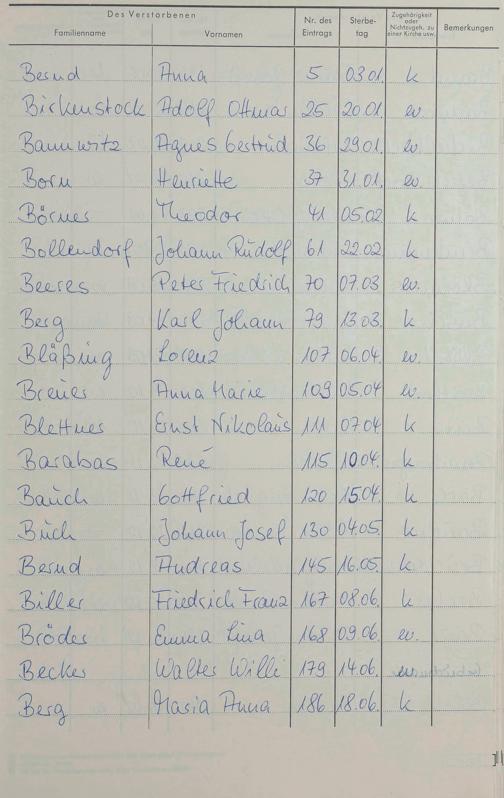 Des Verstorbenen
Familienname Vornamen Nr. des Eintrags Sterbe-tag Zugehörigkeit oder Nichtzugeh. zu einer Kirche usw. Bemerkungen
Bernd Anna 5 03.01. k
Birkenstock Adolf Ottmar 25 20.01. ev.
Bannwitz Agnes Gertrud 36 29.01. ev.
Born Henriette 37 31.01. ev.
Börner Theodor 41 05.02 k
Bollendorf Johann Rudolf 61 22.02 k
Beeres Peter Friedrich 70 07.03 ev.
Berg Karl Johann 79 13.03. k
Bläßing Lorenz 107 06.04. ev.
Breuer Anna Marie 109 05.04 ev.
Blettner Ernst Nikolaus 111 07.04 k
Barabas René 115 10.04. k
Bauch Gottfried 120 15.04. k
Buch Johann Josef 130 04.05. k
Bernd Andreas 145 16.05. k
Biller Friedrich Franz 167 08.06. k
Bröder Emma Lina 168 09.06. ev.
Becker Walter Willi 179 14.06. ev.
Berg Maria Anna 186 18.06. k